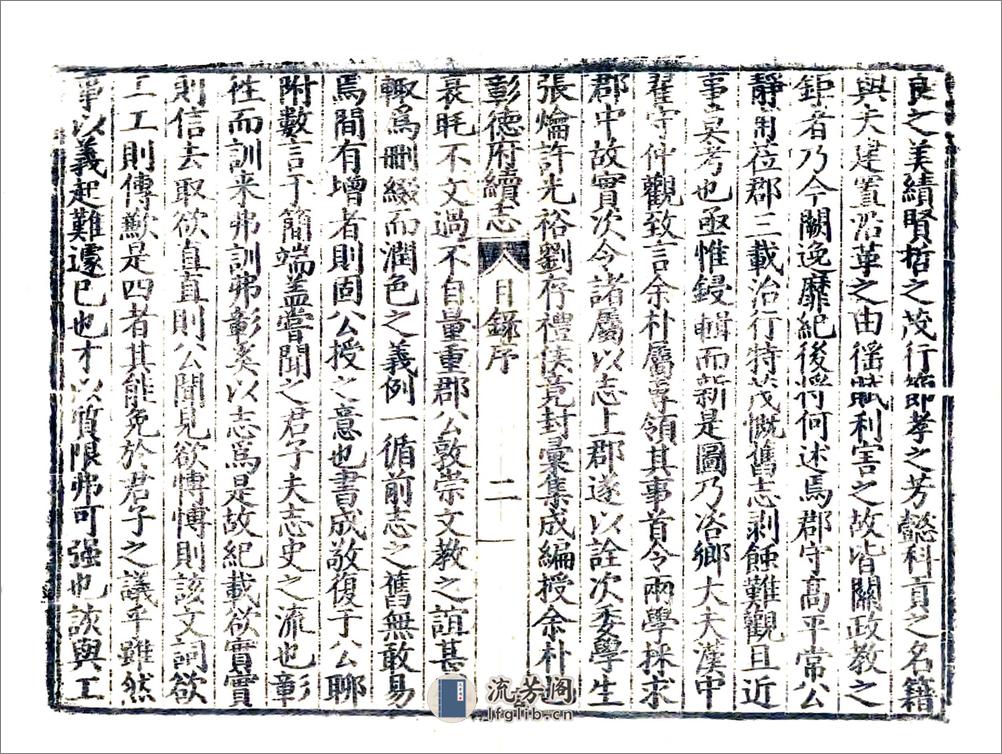 良之美績賢哲之茂行節孝之芳懿科貢之名籍
與夫建置沿革之由徭賦利害之故皆關政教之
鉅者乃今闕逸靡紀後將何述焉郡守高平常公
靜用莅郡三載治行特茂慨舊志剥蝕難觀且近
事莫考也亟惟鋟輯而新是圖乃咨鄉大夫漢中
翟守仲觀致言余朴屬專領其事首令兩學採求
郡中故實次令諸屬以志上郡遂以詮次委學生
張爚許光裕劉存禮侯竟封彙集成編授余朴也
彰德府續志 目錄序 二
衰眊不文過不自量重郡公敦崇文教之誼甚
輒爲刪綴而潤色之義例一循前志之舊無敢易
焉間有增者則固公授之意也書成敬復于公聊
附數言于簡端盖嘗聞之君子夫志史之流也彰
徃而訓来弗訓弗彰奚以志爲是故紀載欲實實
則信去取欲直直則公聞見欲慱慱則該文詞欲
工工則傳歟是四者其能免於君子之議乎雖然
事以義起難遽已也才以質限弗可强也該與工
流芳阁
lfglib.cn